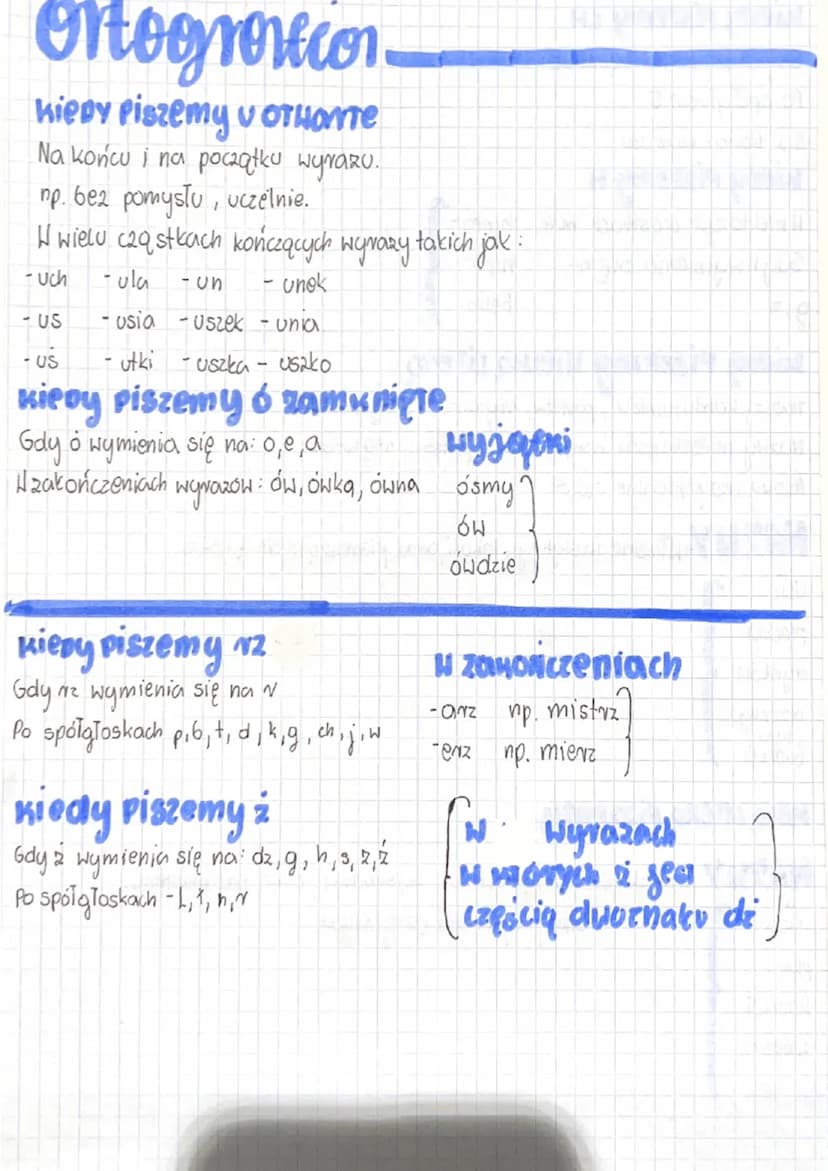 Ortografia
kiedy piszemy u otwarte
Na końcu i na początku wyrazu.
np. bez pomysłu, uczelnie.
W wielu cząstkach kończących wyrazy takich jak:
-uch -ula -un -unek
-us -usia -uszek -unia
-uś -utki -uszka -uszko
kiedy piszemy ó zamknięte
Gdy ó wymienia się na: o,e,a
W zakończeniach wyrazów: ów, ówka, ówna
wyjątki
ósmy
ów
ówdzie
kiedy piszemy rz
Gdy rz wymienia się na r
Po spółgłoskach p,b,t,d,k,g,ch,j,w
w zakończeniach
-arz np. mistrz
-erz np. mierz
kiedy piszemy ż
Gdy ż wymienia się na: dz, g, h, s, z, ź
Po spółgłoskach - L, ł, n, r
w wyrazach
w których ż jest
częścią dwuznaku dż